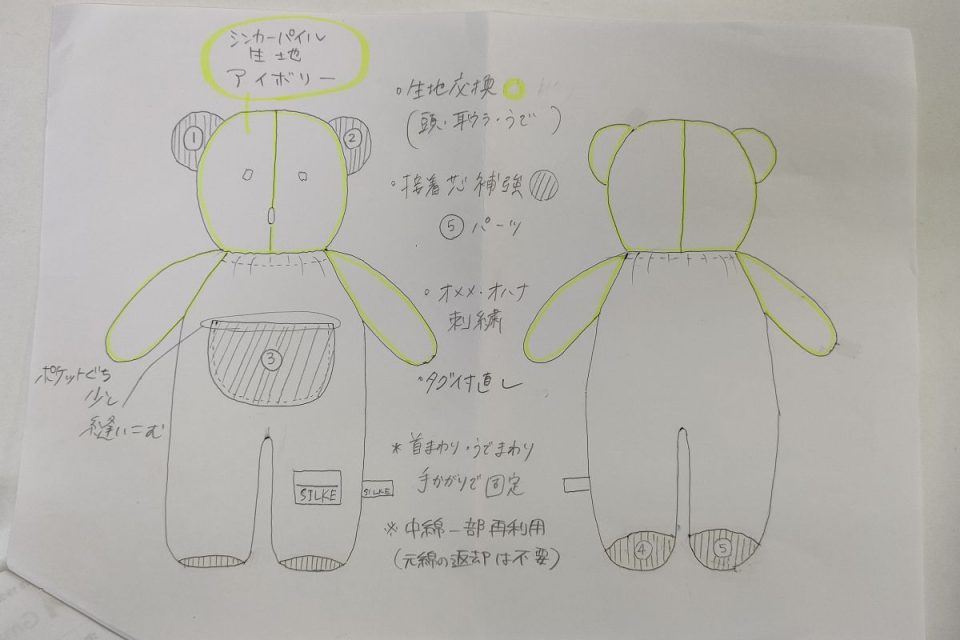 シンカーパイル
生地
アイボリー
①
②
③
ポケットぐち
少し
縫いこむ
SILKE
SILKE
。生地交換
(頭・耳ウラ・うで)
。接着芯補強
⑤パーツ
。オメメ・オハナ
刺繍
。タグ付直し
* 首まわり・うでまわり
手かがりで固定
※中綿一部再利用
(元綿の返却は不要)
④
⑤